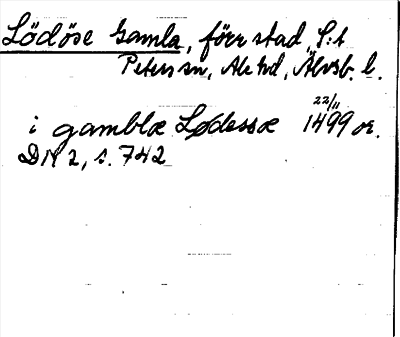 Lödöse Gamla, förr stad, S:t
Peters sn, Ale hd, Älvsb. l.
22/11
i gamblæ Lødessæ 1499 or.
DN 2, s. 742